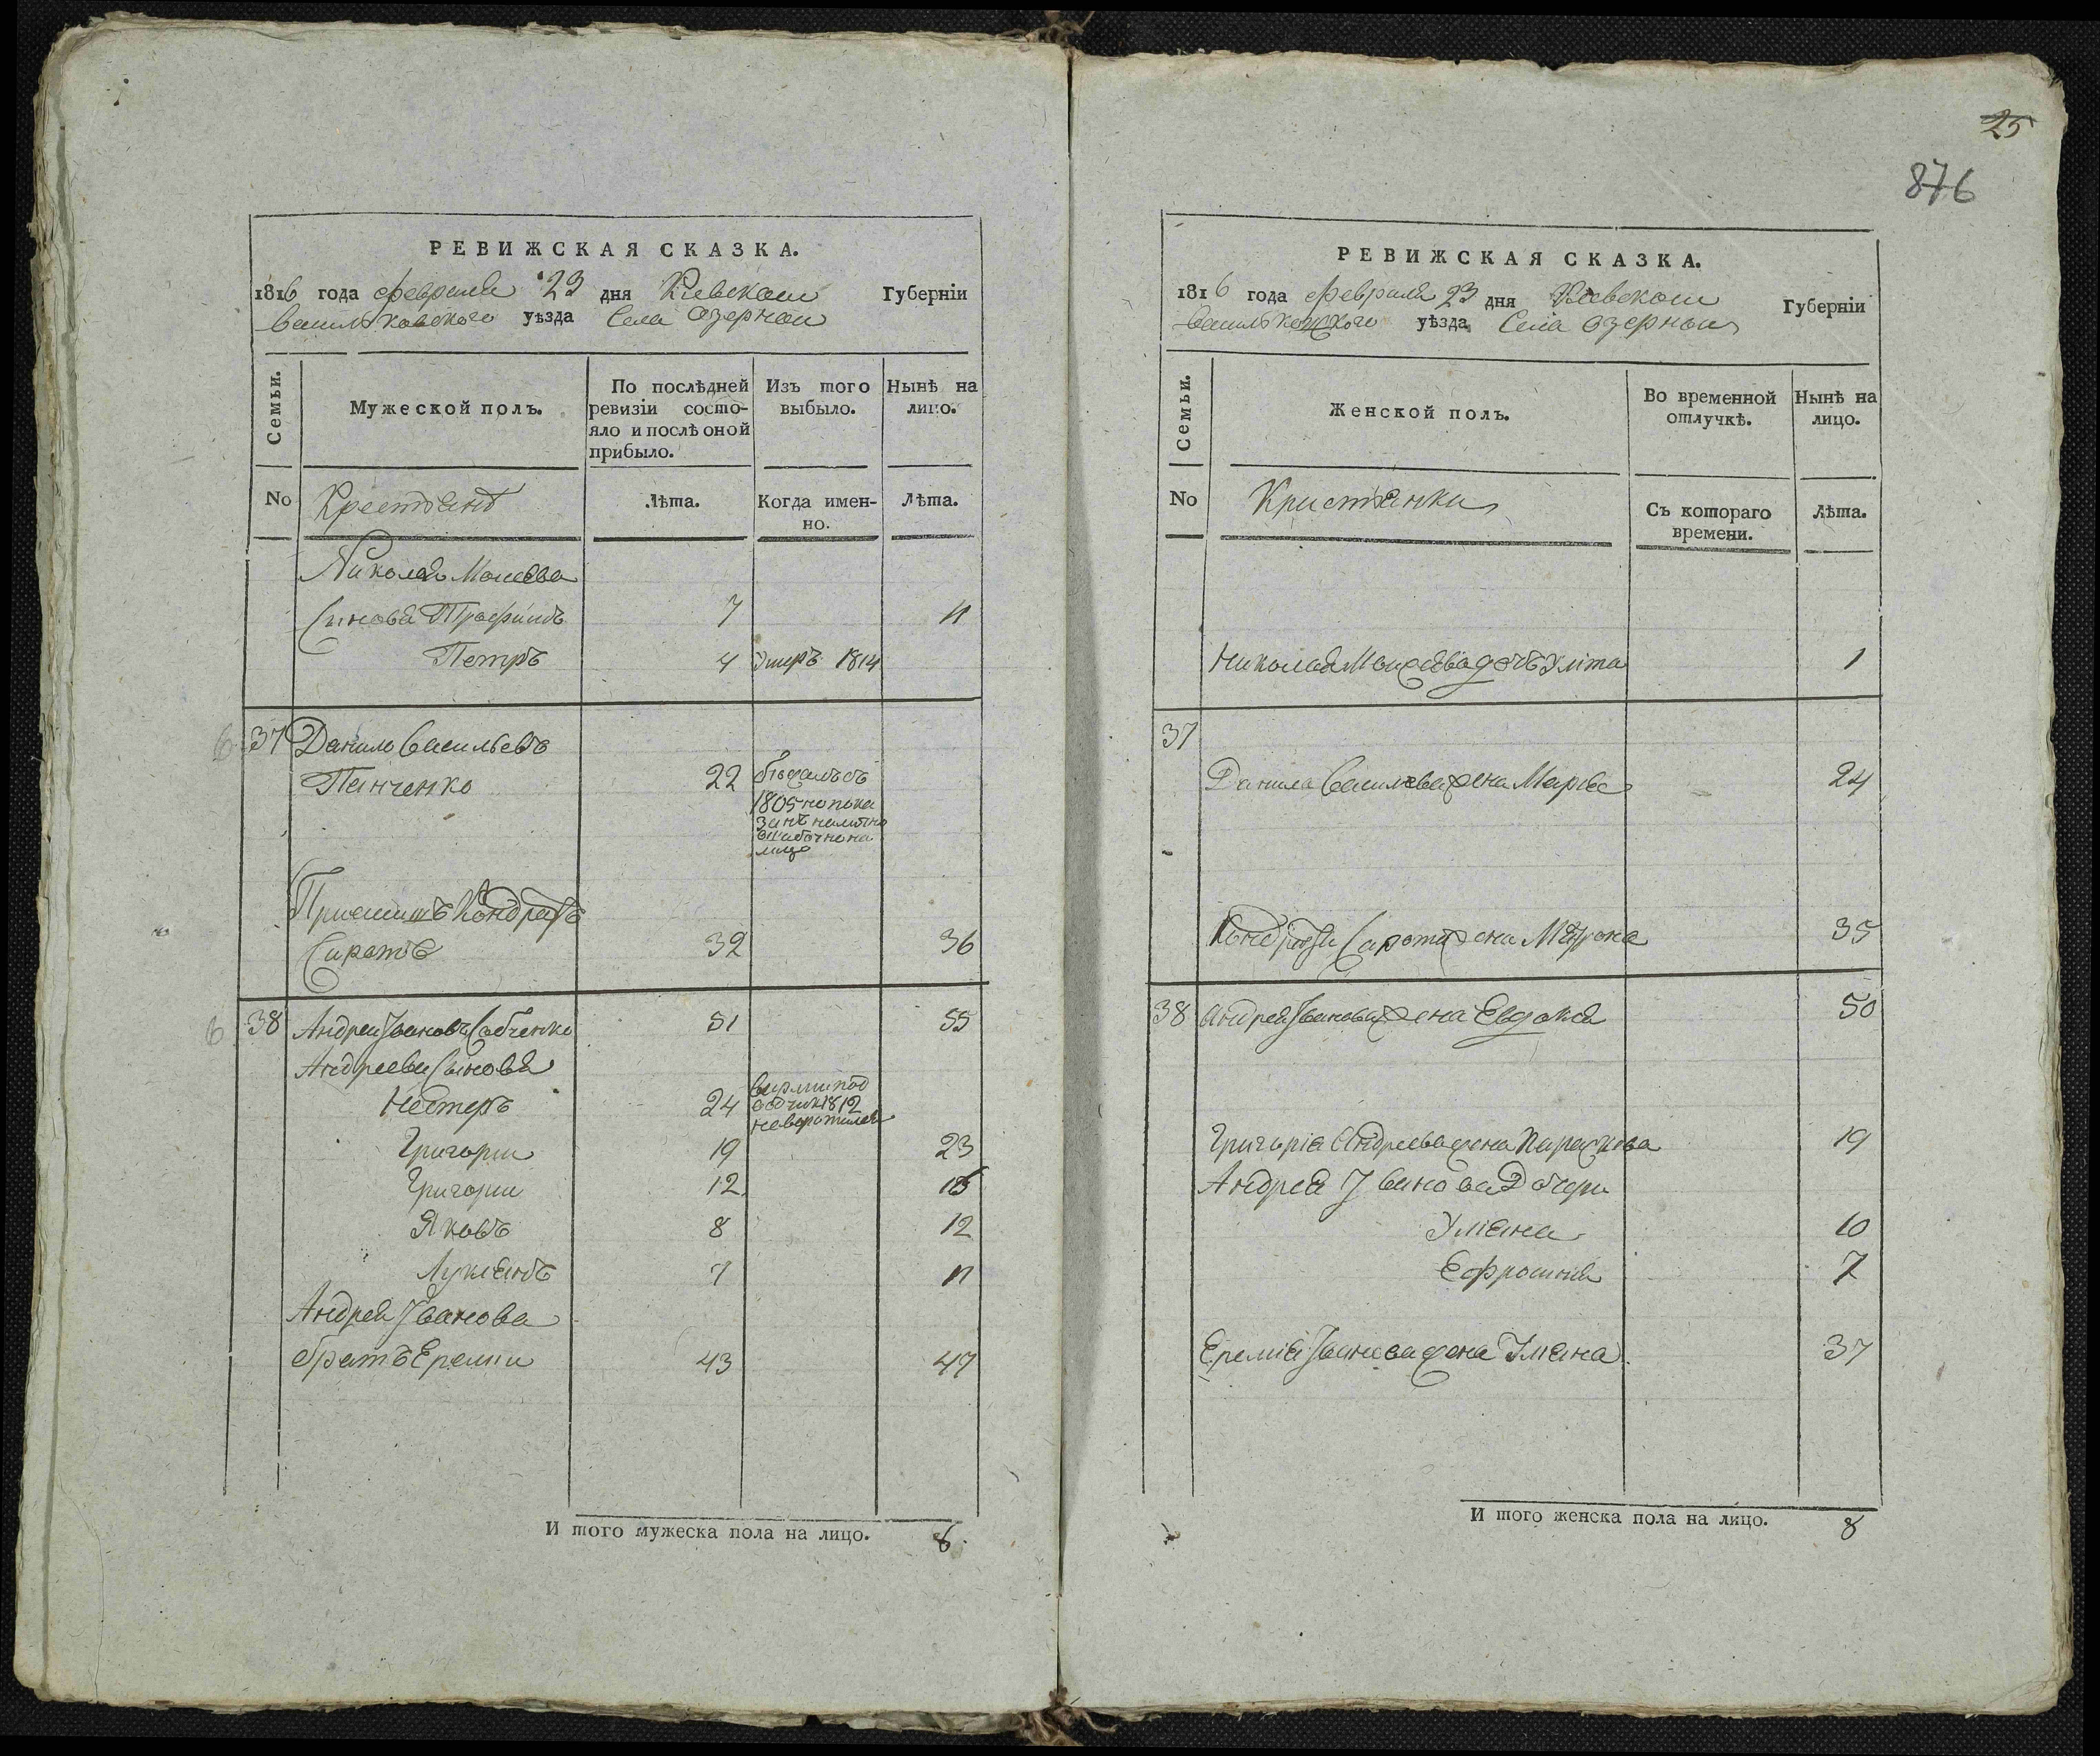 25
876
РЕВИЖСКАЯ СКАЗКА.
1816 года февраля 23 дня Киевской Губерніи
Васильковского уѣзда Села Озерной
Семьи.
Мужеской полъ.
По послѣдней ревизіи состо-
яло и послѣ оной
прибыло.
Изъ того
выбыло.
Нынѣ на
лицо.
No
Крестянъ
Лѣта.
Когда имен-
но.
Лѣта.
Николая Моисеева
Синовя Трофимъ 7 11
Петръ 4 Умеръ 1814
6 37 Данило Васильевъ
Панченко 22
1805 но пока
занъ
ошибочно на
лицо
Приемишъ Кондратъ
Сирота 32 36
6 38 Андрей Ивановъ Собченко 51 55
Андреевы Сыновя
Нестеръ 24
1812
неворотился
Григорий 19 23
Григорий 12 16
Яковъ 8 12
Лукіянъ 7 11
Андрея Иванова
братъ Еремий 43 47
И того мужеска пола на лицо. 8
РЕВИЖСКАЯ СКАЗКА.
1816 года февраля 23 дня Киевской Губерніи
Васильковского уѣзда Села Озерной
Семьи.
Женской полъ.
Во временной
отлучкѣ.
Нынѣ на
лицо.
No
Кристянки
Съ котораго
времени.
Лѣта.
Николая Моисеева дочь Улита 1
37
Данила Василева жена Маря 24
Кондрата Сироти жена Мотрона 35
38 Андрея Иванова жена Евдокия 50
Григорія Андреева жена Параскева 19
Андрея Іванова Дочери
Уліяна 10
Ефросиния 7
Еремія Іванова жена Уліяна 37
И того женска пола на лицо. 8